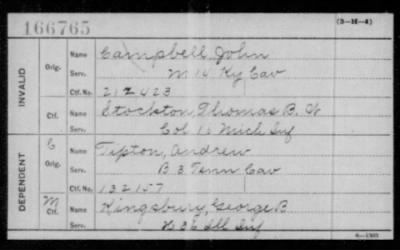 166765
(3-H-4)
INVALID
Orig.
Name Campbell, John
Serv. M 14 Ky Cav
Ctf. No. 212423
Ctf.
Name Stockton, Thomas B. W
Serv. Col 16 Mich Inf
DEPENDENT
C
Orig.
Name Tipton, Andrew
Serv. B 3 Tenn Cav
Ctf. No. 132157
M
Ctf.
Name Kingsbury, George B
Serv. 36 Ill Inf